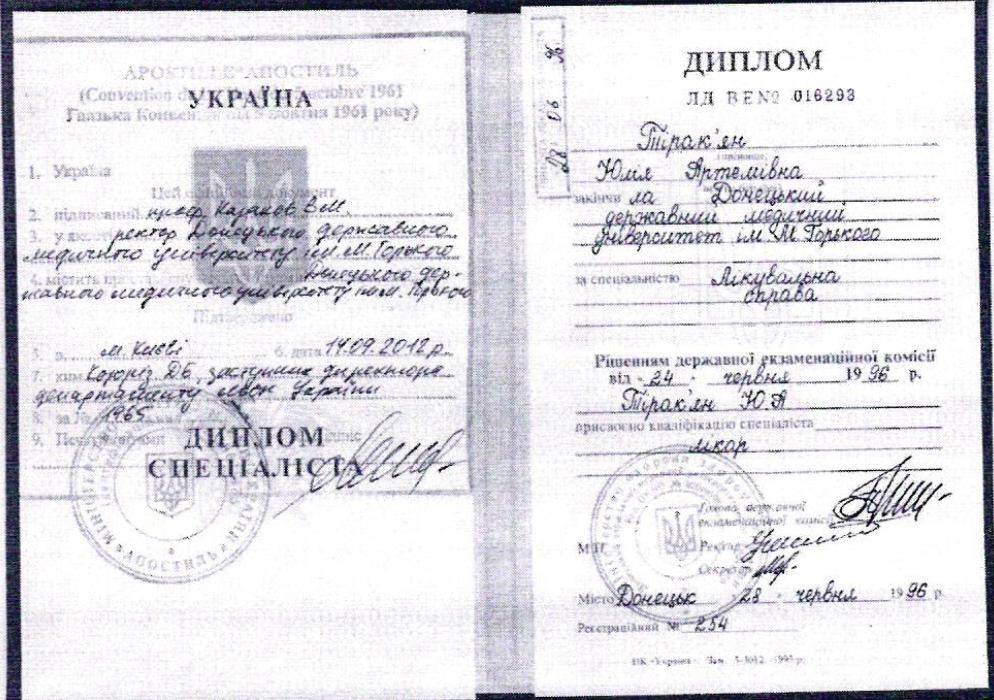 APOSTILLE АПОСТИЛЬ
(Convention de octobre 1961
Гаазька Конвенція від 5 жовтня 1961 року)
УКРАЇНА
1. Україна
Цей документ
2. підписаний проф. Казаков В.М.
3. у якості ректор Донецького державного
медичного університету ім. М. Горького
4. містить Донецького дер-
жавного медичного університету ім. М. Горького
Підтверджено
5. в м. Києві 6. дата 14.09.2012 р.
7. ким Д.В., заступник директора
департаменту України
8. за № 1965
9.
ДИПЛОМ
СПЕЦІАЛІСТА
АПОСТИЛЬ
28 06 96
ДИПЛОМ
ЛД ВЕ№ 016293
Тірак'ян
Юлія Артемівна
закінчи ла "Донецький
державний медичний
університет ім М Горького
за спеціальністю Лікувальна
справа
Рішенням державної екзаменаційної комісії
від 24 червня 1996 р.
Тірак'ян Ю.А
присвоєно кваліфікацію спеціаліста
лікар
Голова державної
екзаменаційної комісії
М.П. Ректор
Секретар
Місто Донецьк 28 червня 1996 р.
Реєстраційний № 254